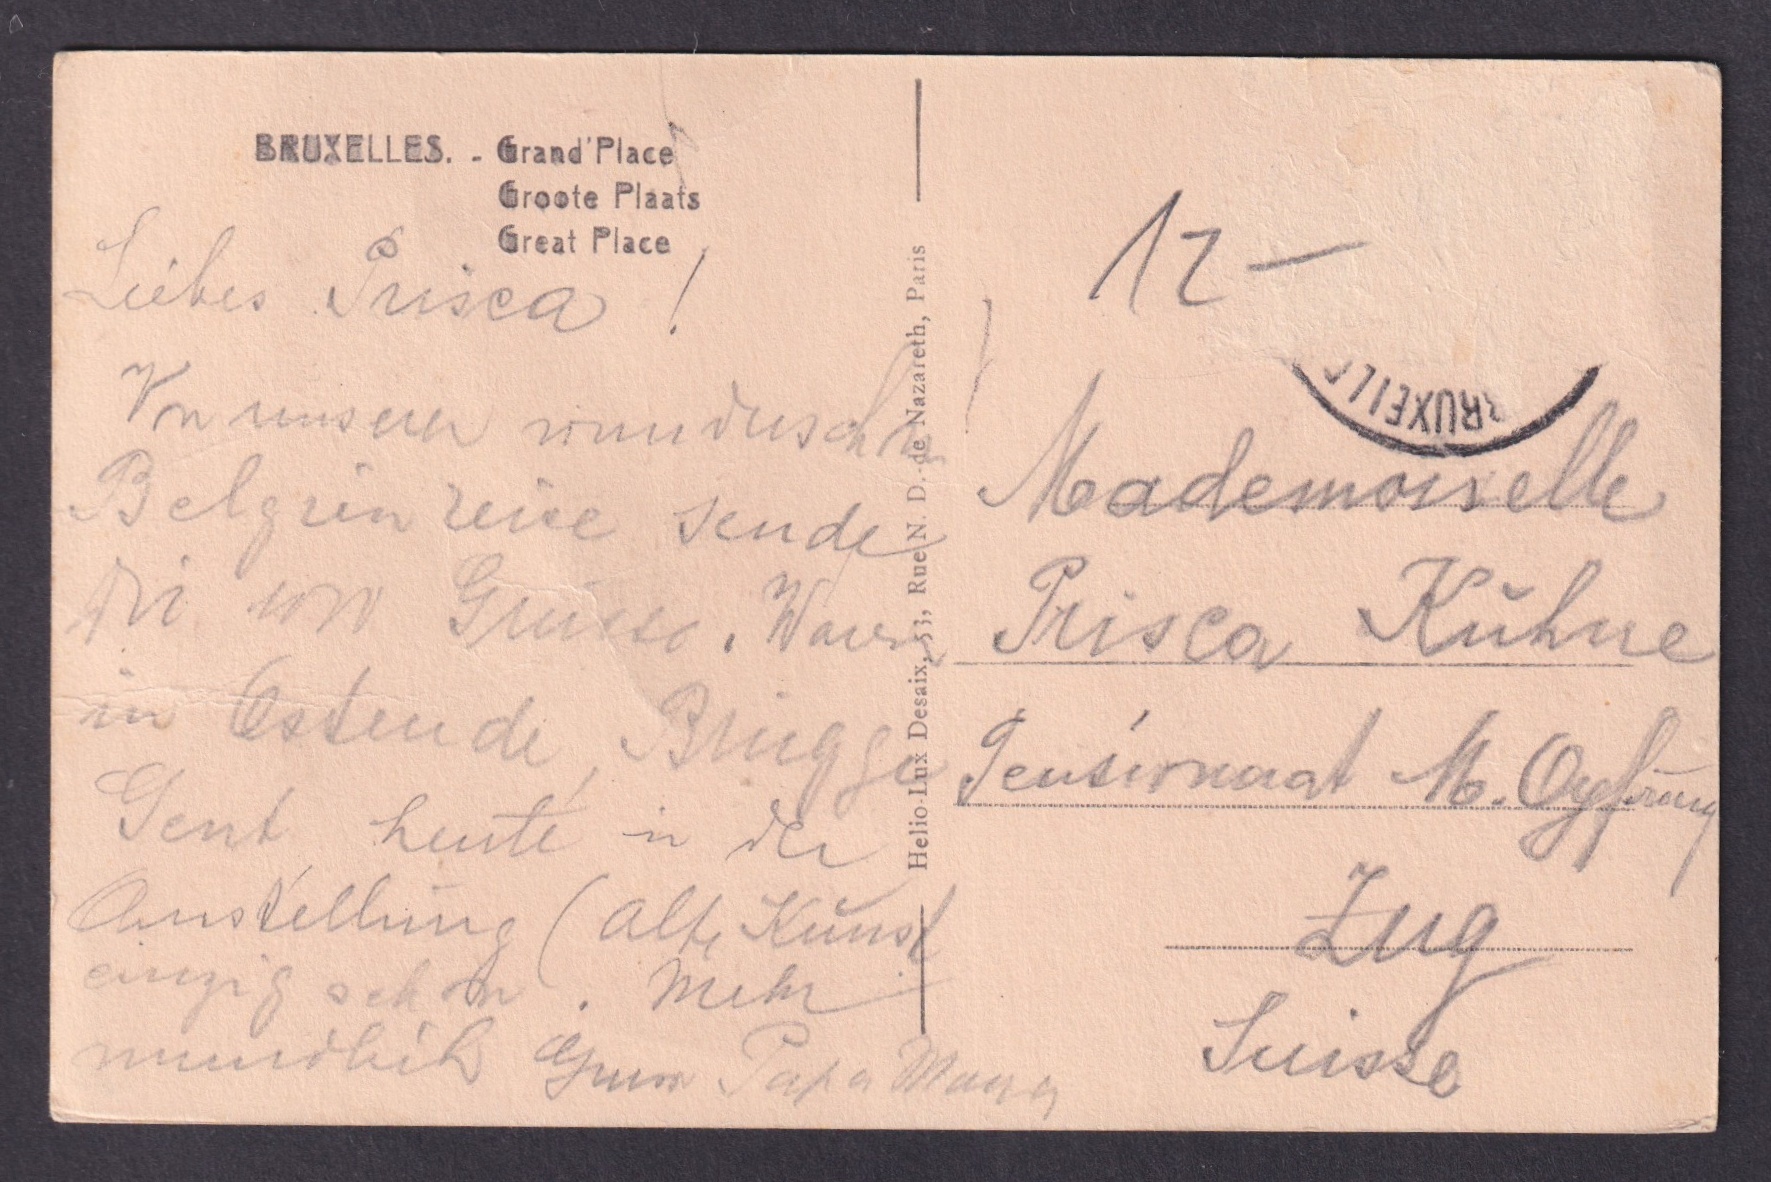 BRUXELLES. - Grand'Place
Groote Plaats
Great Place
Liebes Prisca !
Von unserer
Belgienreise sende
Dir Grüsse. Waren
in Ostende, Brügge
Gent, heute in der
Ausstellung (alte Kunst
einzig schön. Mehr
mündlich Papa Mama
Helio-Lux Desaix, 53, Rue N. D.-de Nazareth, Paris
12 —
BRUXELL
Mademoiselle
Prisca Kühne
Pensionnat M.
Zug
Suisse